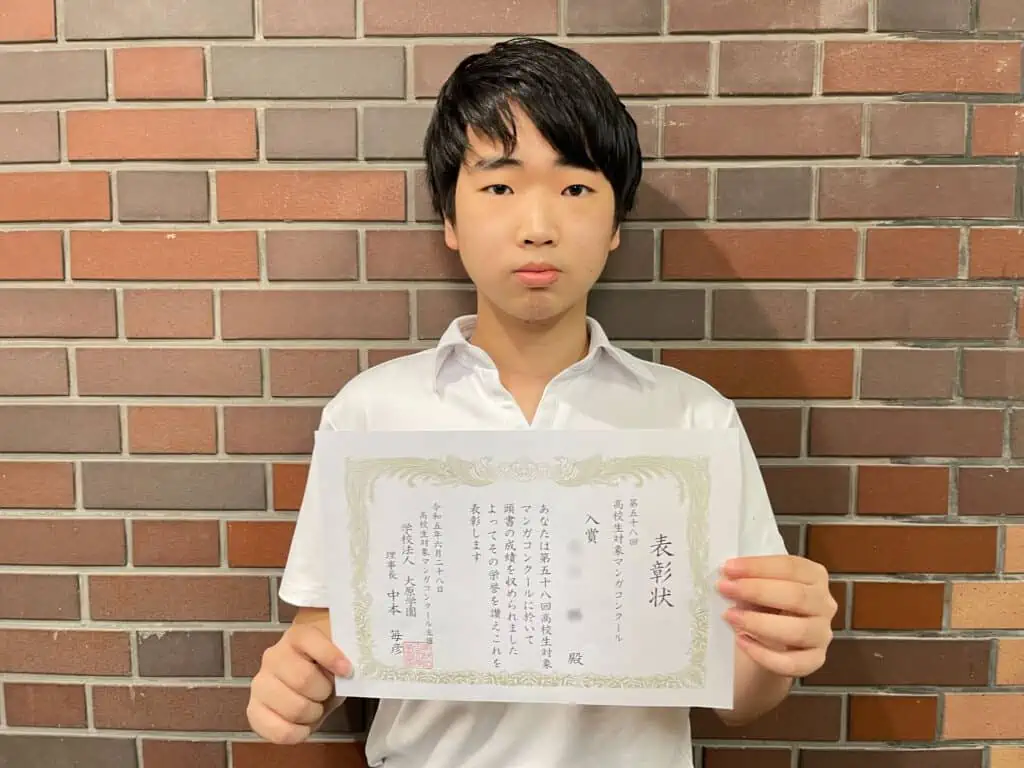 表彰状
第五十八回
高校生対象マンガコンクール
入賞
殿
あなたは第五十八回高校生対象
マンガコンクールに於いて
頭書の成績を収められました
よってその栄誉を讃えこれを
表彰します
令和五年六月二十八日
高校生対象マンガコンクール主催
学校法人 大原学園
理事長 中本 毎彦